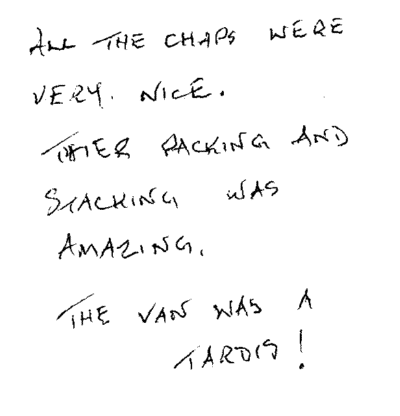 ALL THE CHAPS WERE
VERY. NICE.
THIER PACKING AND
STACKING WAS
AMAZING.
THE VAN WAS A
TARDIS!